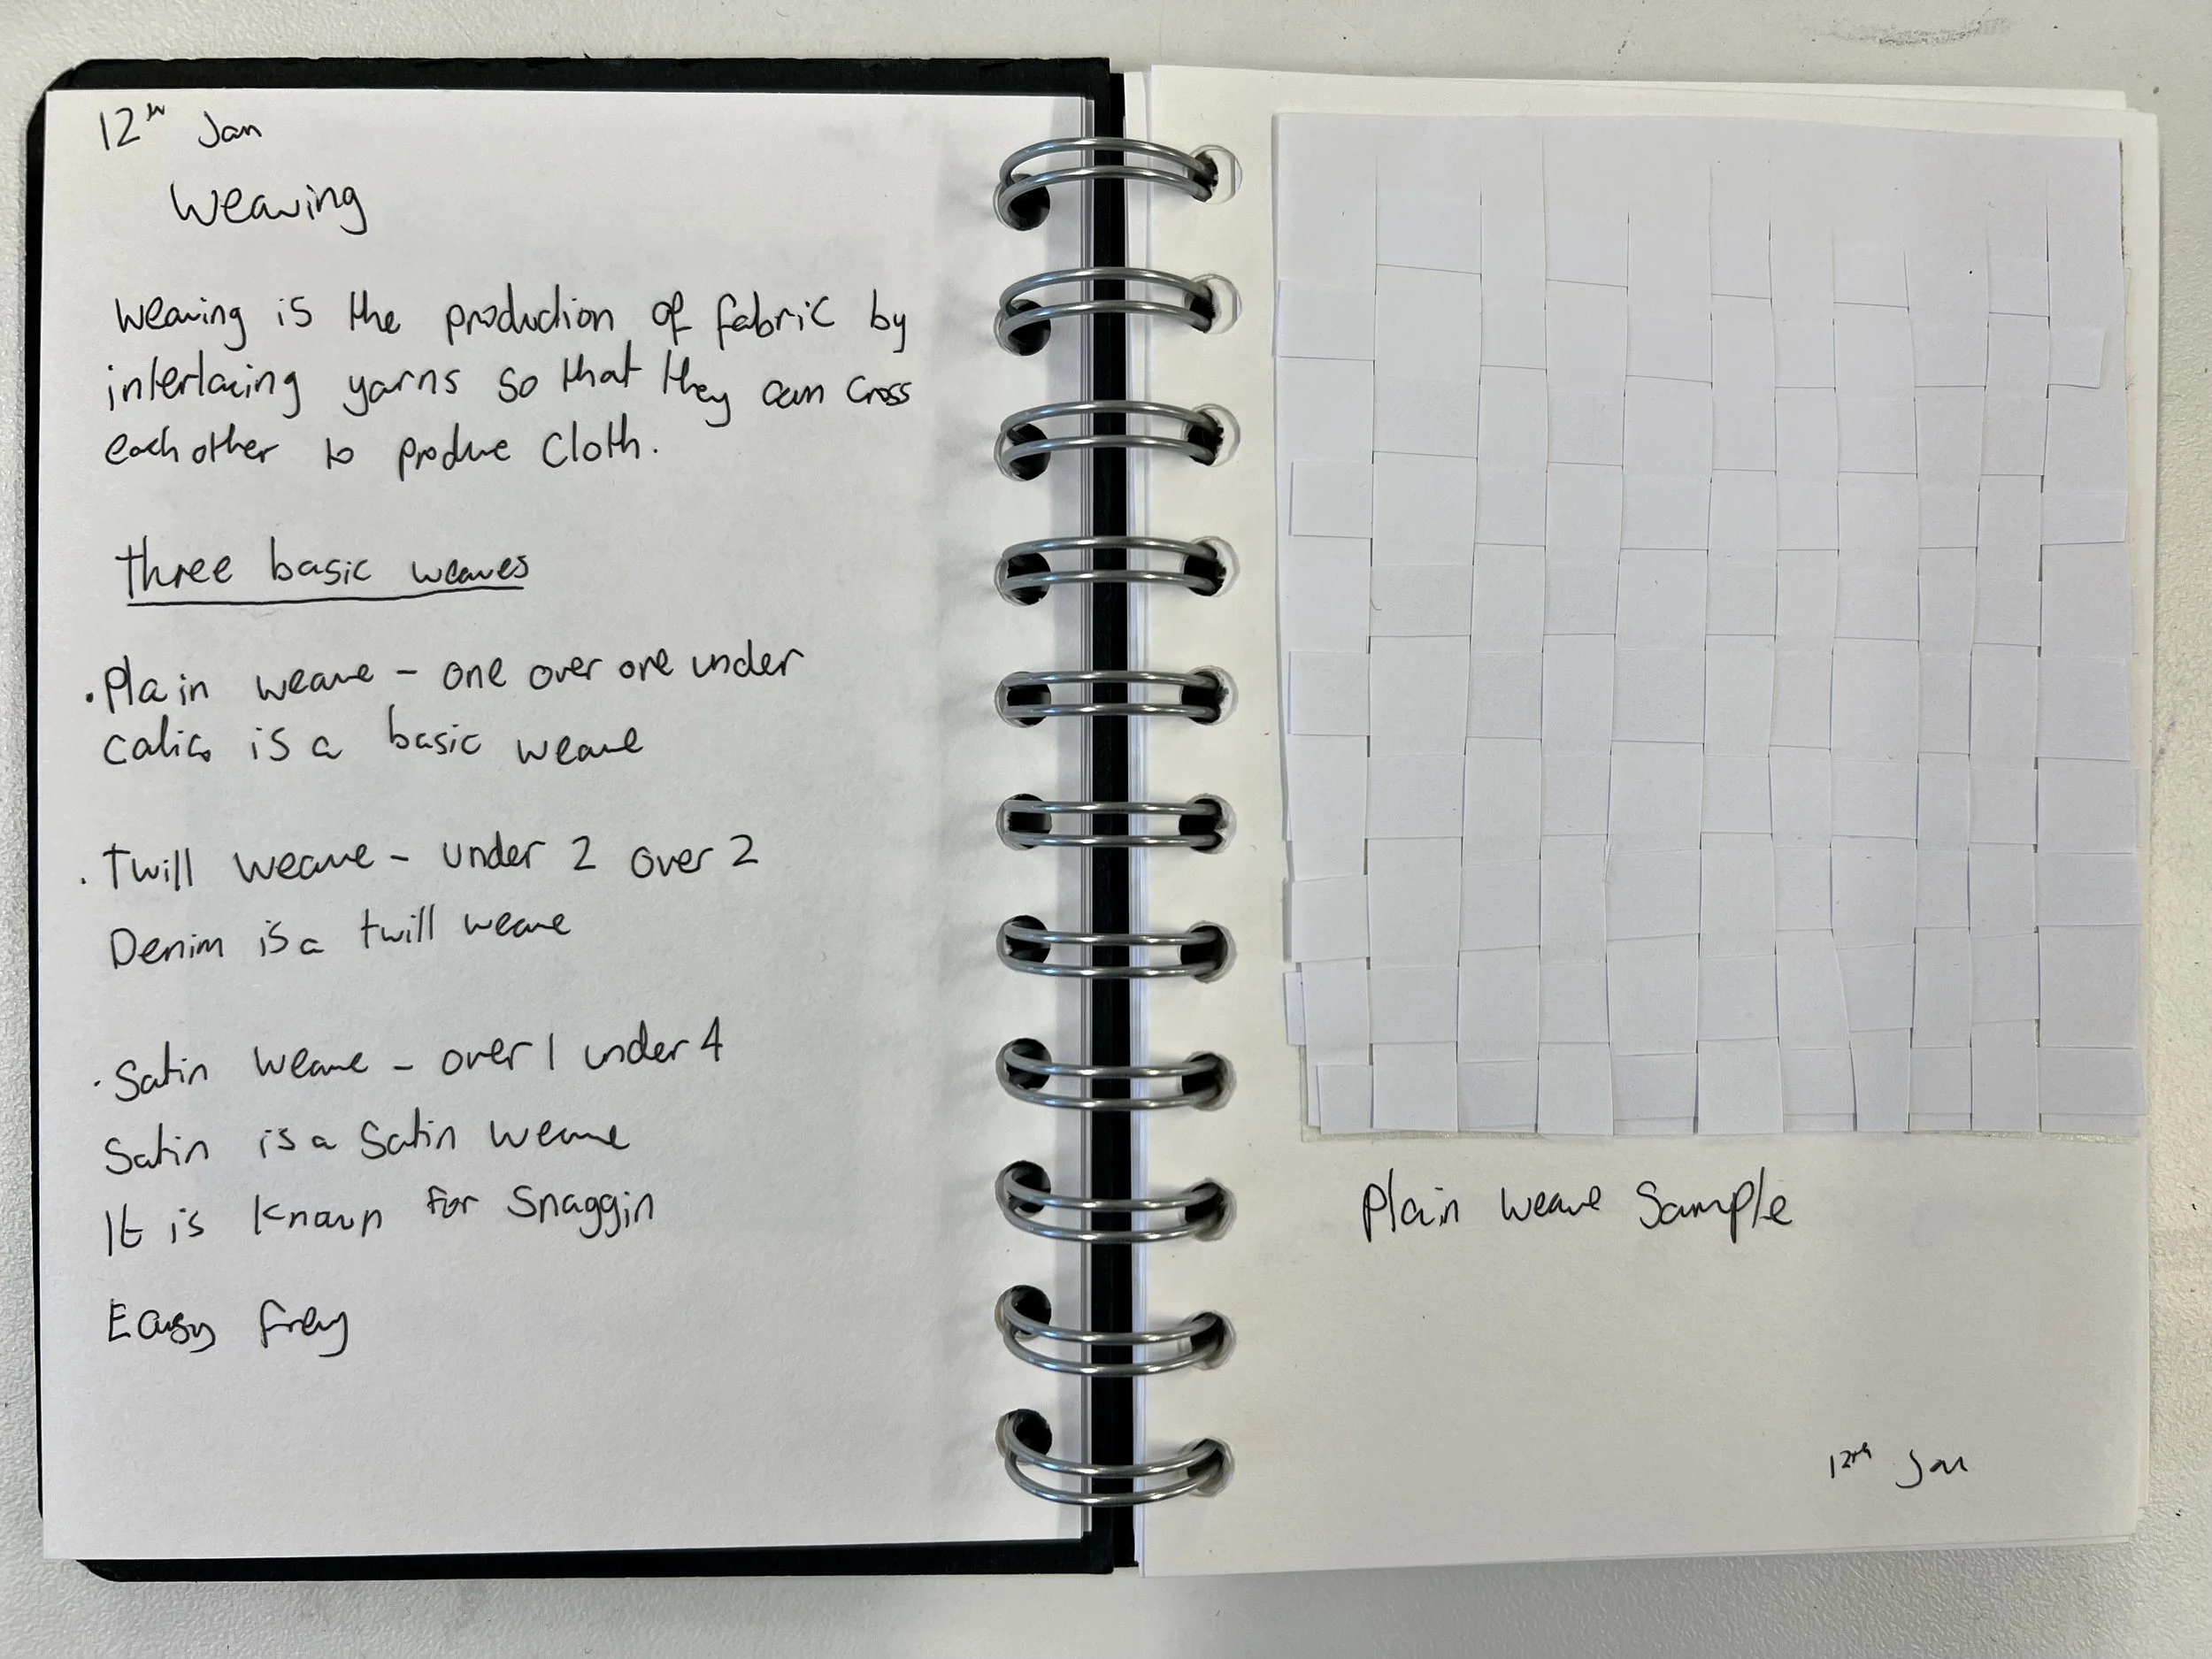 12th Jan
Weaving
Weaving is the production of fabric by
interlacing yarns so that they can cross
each other to produce cloth.
three basic weaves
• Plain weave - one over one under
Calico is a basic weave
• Twill weave - under 2 over 2
Denim is a twill weave
• Satin weave - over 1 under 4
Satin is a Satin weave
It is known for Snaggin
Easy fray
Plain weave Sample
12th Jan